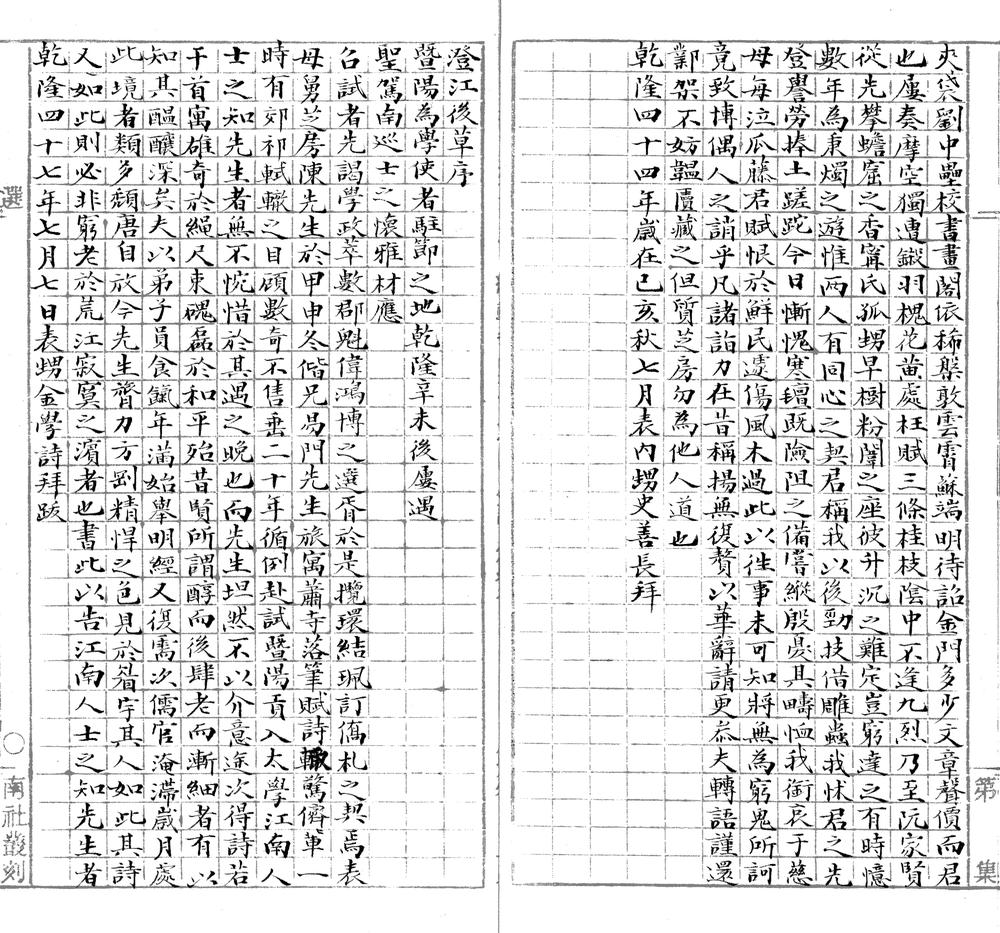 夾袋劉中壘校書畫閣依稀槃敦雲霄蘇端明待詔金門多少文章聲價而君
也屢奏摩空獨遭鎩羽槐花黃處枉賦三條桂枝陰中不逢九烈乃至阮家賢
從先攀蟾窟之香甯氏孤甥早樹粉闈之座彼升沉之難定豈窮達之有時憶
數年為秉燭之遊惟兩人有同心之契君稱我以後勁技借雕蟲我怵君之先
登譽勞捧土蹉跎今日慚愧寒氊既險阻之備嘗縱殷憂其疇恤我銜哀于慈
母每泣瓜藤君賦恨於鮮民遽傷風木過此以往事未可知將無為窮鬼所訶
竟致博偶人之誚乎凡諸詣力在昔稱揚無復贅以華辭請更恭夫轉語謹還
鄴架不妨韞匵藏之但質芝房勿為他人道也
乾隆四十四年歲在己亥秋七月表內甥史善長拜
澄江後草序
暨陽為學使者駐節之地乾隆辛未後屢遇
聖駕南巡士之懷雅材應
召試者先謁學政萃數郡魁偉鴻博之選胥於是攬環結珮訂僑札之契焉表
母舅芝房陳先生於甲申冬偕兄易門先生旅寓蕭寺落筆賦詩輒驚儕輩一
時有郊祁軾轍之目顧數奇不售垂二十年循例赴試暨陽貢入太學江南人
士之知先生者無不惋惜於其遇之晚也而先生坦然不以介意途次得詩若
干首寓雄奇於繩尺束磈磊於和平殆昔賢所謂醇而後肆老而漸細者有以
知其醞釀深矣夫以弟子員食餼年滿始舉明經又復需次儒官淹滯歲月處
此境者類多頹唐自放今先生膂力方剛精悍之色見於眉宇其人如此其詩
又如此則必非窮老於荒江寂寞之濱者也書此以告江南人士之知先生者
乾隆四十七年七月七日表甥金學詩拜跋
選
○
南社叢刻
第
集